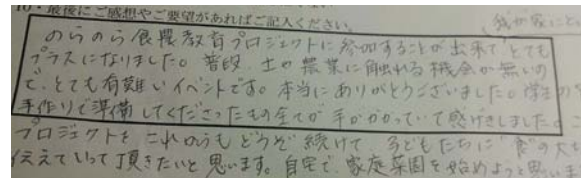 10・最後にご感想やご要望があればご記入ください。
我が家にと
のらのら食農教育プロジェクトに参加することが出来て、とても
プラスになりました。普段、土や農業に触れる機会が無いの
で、とても有難いイベントです。本当にありがとうございました。学生の
手作りで準備してくださったもの全てが手がかかっていて感げきしました。
プロジェクトをこれからもどうぞ続けて 子どもたちに"食"の大
伝えていって頂きたいと思います。自宅で、家庭菜園を始めようと思いま